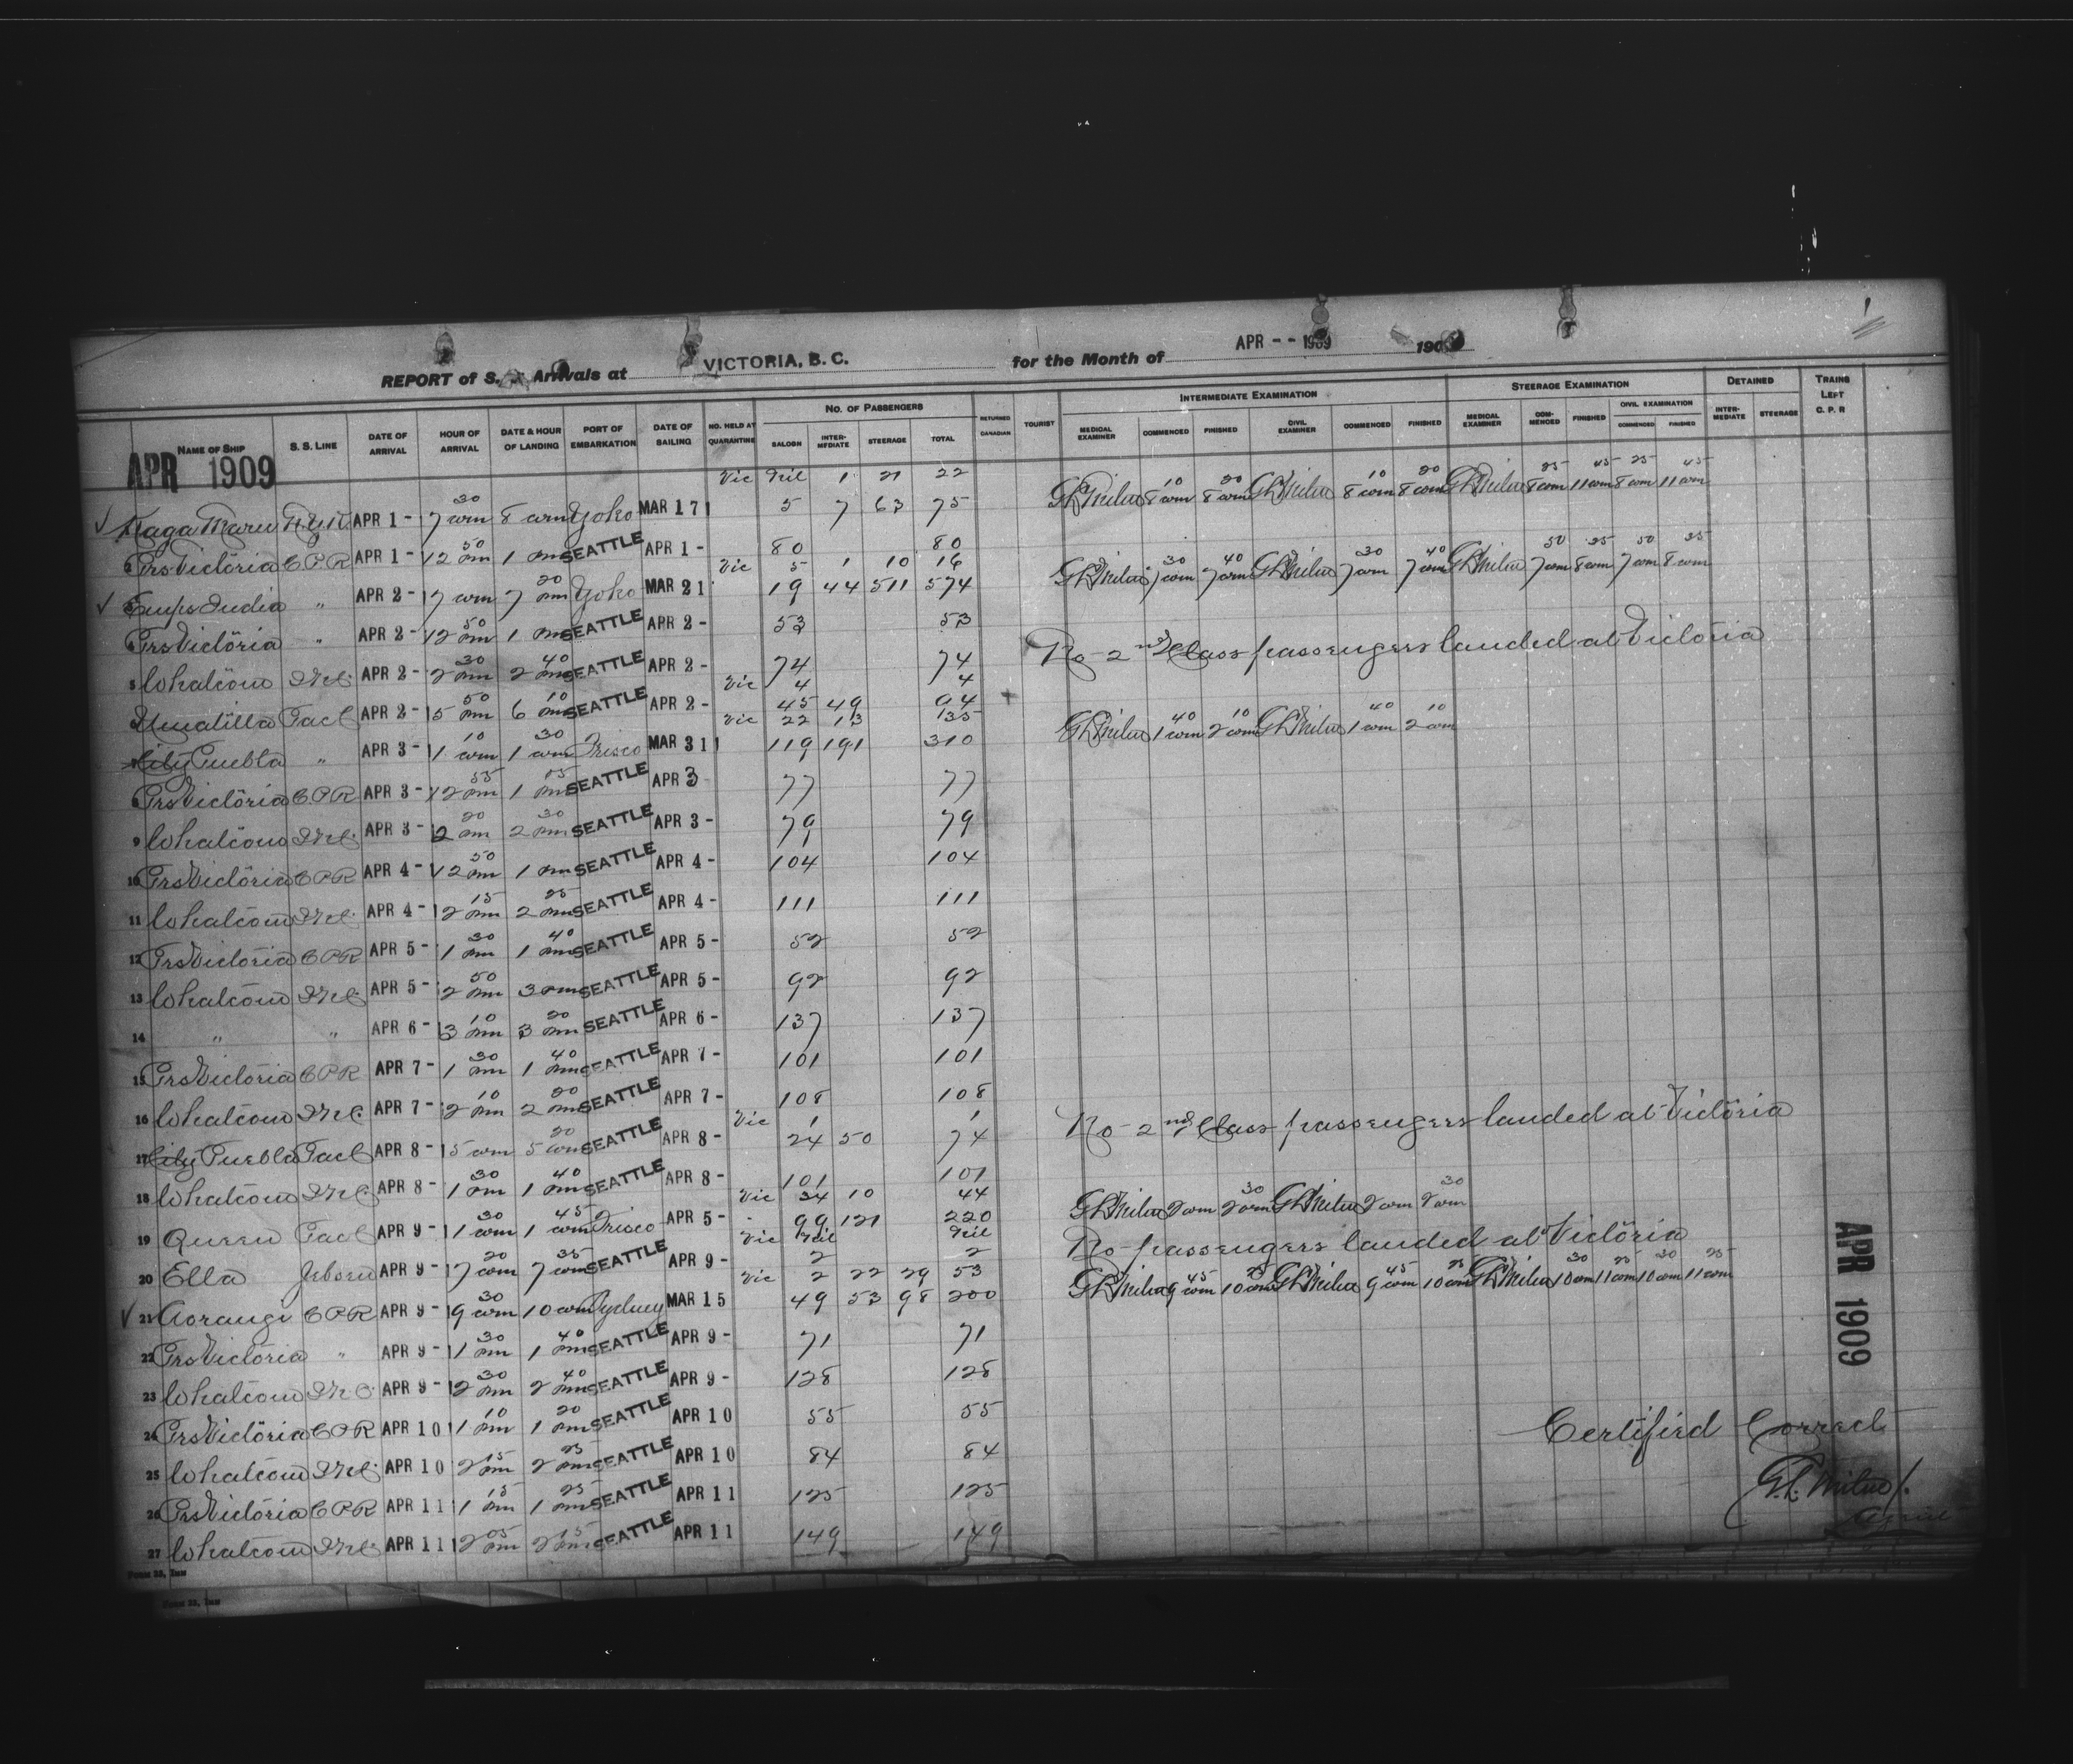 REPORT of S. S. Arrivals at VICTORIA, B. C. for the Month of APR - - 1909 190
NAME OF SHIP S. S. LINE DATE OF ARRIVAL HOUR OF ARRIVAL DATE & HOUR OF LANDING PORT OF EMBARKATION DATE OF SAILING NO. HELD AT QUARANTINE NO. OF PASSENGERS SALOON INTER-MEDIATE STEERAGE TOTAL RETURNED CANADIAN TOURIST INTERMEDIATE EXAMINATION MEDICAL EXAMINER COMMENCED FINISHED CIVIL EXAMINER COMMENCED FINISHED STEERAGE EXAMINATION MEDICAL EXAMINER COM-MENCED FINISHED CIVIL EXAMINATION COMMENCED FINISHED DETAINED INTER-MEDIATE STEERAGE TRAINS LEFT C. P. R
APR 1909
Vic Nil 1 21 22
Kaga Maru N.Y.K. APR 1 - 7 30 am 8 am Yoko MAR 17 5 7 63 75 GLMilne 8 10 am 8 20 am GLMilne 8 10 am 8 20 am GLMilne 8 25 am 11 45 am 8 25 am 11 45 am
2 Prs Victoria C.P.R APR 1 - 12 50 pm 1 pm SEATTLE APR 1 - 80 80
Vic 5 1 10 16
Emps India " APR 2 - 7 am 7 20 am Yoko MAR 21 19 44 511 574 GLMilne 7 30 am 7 40 am GLMilne 7 30 am 7 40 am GLMilne 7 50 am 8 35 am 7 50 am 8 35 am
Prs Victoria " APR 2 - 12 50 pm 1 pm SEATTLE APR 2 - 53 53
5 Whatcom APR 2 - 2 30 pm 2 40 pm SEATTLE APR 2 - 74 74
Vic 4 4 No 2nd Class passengers landed at Victoria
Umatilla Pac C APR 2 - 5 50 pm 6 10 pm SEATTLE APR 2 - 45 49 94
Vic 22 13 135
City Puebla " APR 3 - 1 10 am 1 30 am Frisco MAR 31 119 191 310 GLMilne 1 40 am 2 10 am GLMilne 1 40 am 2 10 am
8 Prs Victoria C.P.R APR 3 - 12 55 pm 1 pm SEATTLE APR 3 77 77
9 Whatcom APR 3 - 2 20 pm 2 30 pm SEATTLE APR 3 - 79 79
10 Prs Victoria C.P.R APR 4 - 12 50 pm 1 pm SEATTLE APR 4 - 104 104
11 Whatcom APR 4 - 2 15 pm 2 25 pm SEATTLE APR 4 - 111 111
12 Prs Victoria C.P.R APR 5 - 1 30 pm 1 40 pm SEATTLE APR 5 - 52 52
13 Whatcom APR 5 - 2 50 pm 3 pm SEATTLE APR 5 - 92 92
14 " " APR 6 - 3 10 pm 3 20 pm SEATTLE APR 6 - 137 137
15 Prs Victoria C.P.R APR 7 - 1 30 pm 1 40 pm SEATTLE APR 7 - 101 101
16 Whatcom APR 7 - 2 10 pm 2 20 pm SEATTLE APR 7 - 108 108
Vic 1 1 No 2nd Class passengers landed at Victoria
17 City Puebla Pac C APR 8 - 5 am 5 20 am SEATTLE APR 8 - 24 50 74
18 Whatcom APR 8 - 1 30 pm 1 40 pm SEATTLE APR 8 - 101 101
Vic 34 10 44
19 Queen Pac C APR 9 - 1 30 am 1 45 am Frisco APR 5 - 99 121 220 GLMilne 2 am 2 30 am GLMilne 2 am 2 30 am
Vic Nil Nil No passengers landed at Victoria
20 Ella APR 9 - 7 20 am 7 35 am SEATTLE APR 9 - 2 2
Vic 2 22 29 53
21 Aorangi C.P.R APR 9 - 9 30 am 10 am Sydney MAR 15 49 53 98 200 GLMilne 9 45 am 10 25 am GLMilne 9 45 am 10 25 am GLMilne 10 30 am 11 25 am 10 30 am 11 25 am
22 Prs Victoria " APR 9 - 1 30 pm 1 40 pm SEATTLE APR 9 - 71 71
23 Whatcom APR 9 - 2 30 pm 2 40 pm SEATTLE APR 9 - 128 128
24 Prs Victoria C.P.R APR 10 1 10 pm 1 20 pm SEATTLE APR 10 55 55
25 Whatcom APR 10 2 15 pm 2 25 pm SEATTLE APR 10 84 84
26 Prs Victoria C.P.R APR 11 1 15 pm 1 25 pm SEATTLE APR 11 125 125
27 Whatcom APR 11 2 05 pm 2 15 pm SEATTLE APR 11 149 149
APR 1909
Certified Correct
G.L. Milne
FORM 33, IMM
FORM 33, IMM